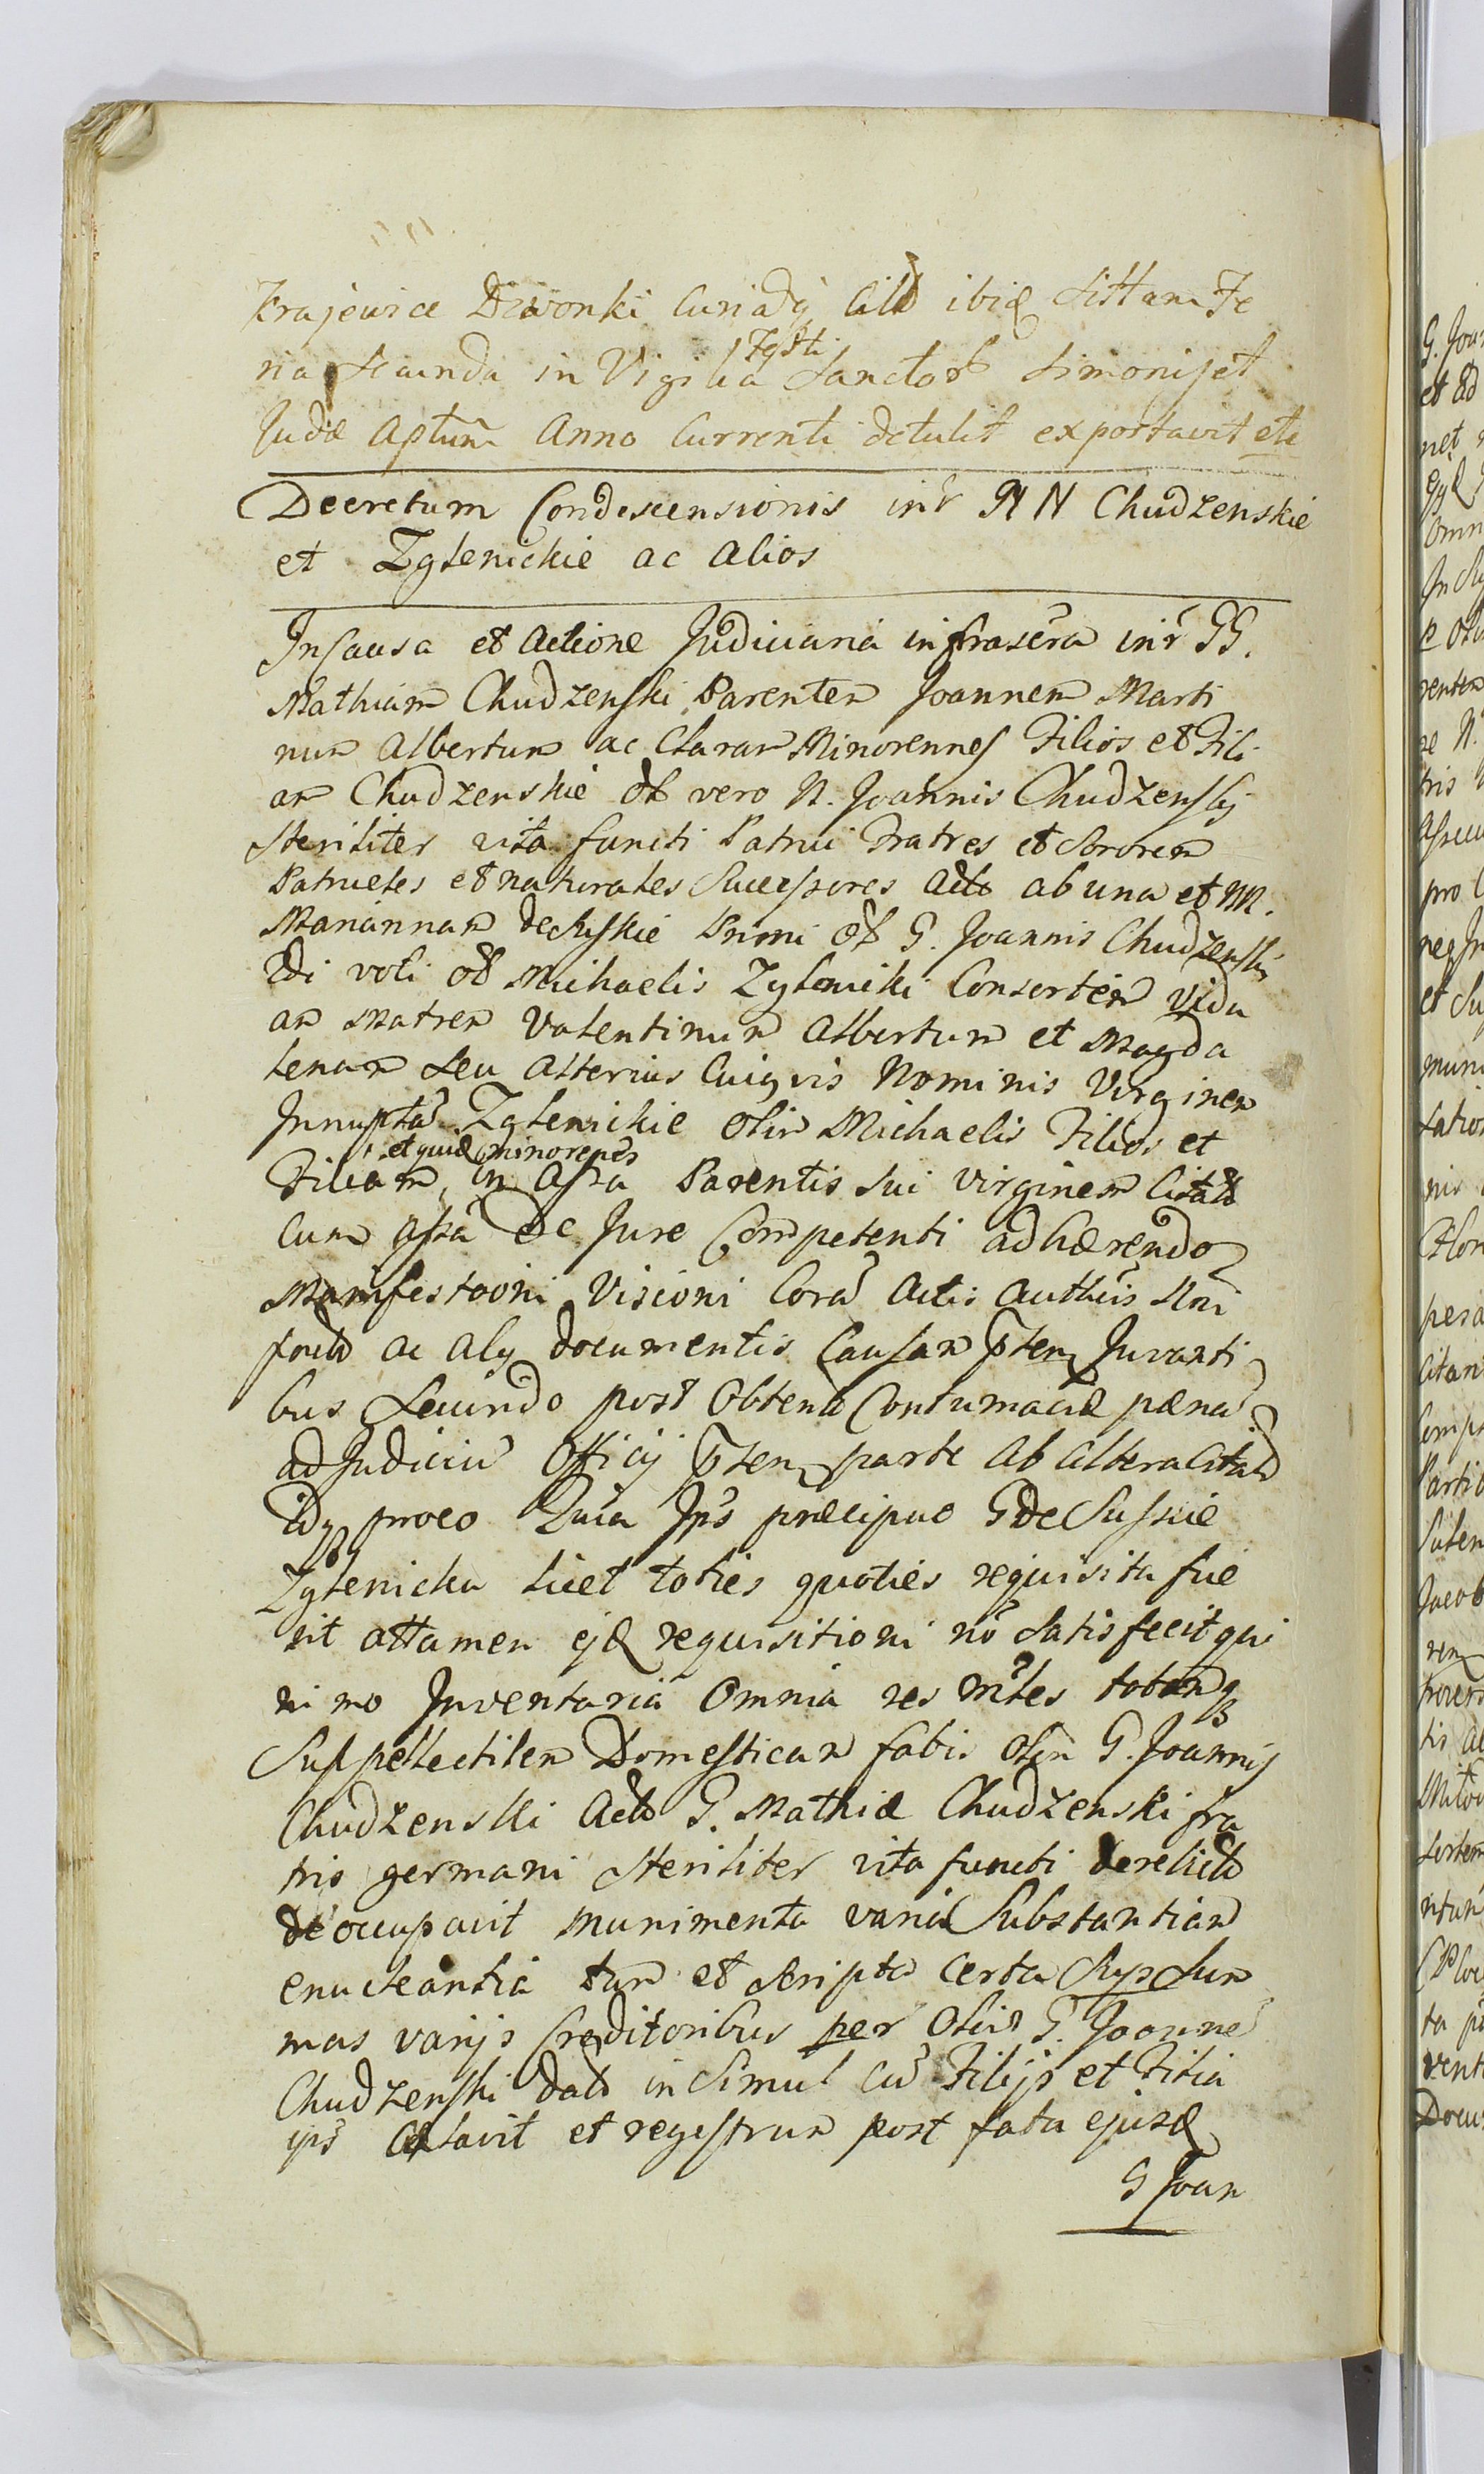 Krajewice Dzwonki Curiady Citt ibid Sittam Fe
ria Secunda in Vigilia Festi Sanctor Simonis et
Judæ Aptum Anno Currenti detulit exportavit etc
Decretum Condescensionis intr NN Chudzenskie
et Zglenickie ac alios
In Causa et Actione Judiciaria infrascra intr GG.
Mathiam Chudzenski Parentem Joannem Marti
num Albertum ac Claram Minorennes Filios et Fili
am Chudzenskie Ol vero N. Joannis Chudzenskij
Steriliter vita functi Patrui Fratres et Sororem
Patrueles et naturales Successores Acto ab una et M.
Mariannam de Suskie Primi Ol G. Joannis Chudzenskij
2di voti Ol Michaelis Zglenicki Consortem Vidu
am Matrem Valentinum Albertum et Magda
lenam Seu Alterius Cuiqvis Nominis Virginem
Innupta Zglenickie Olim Michaelis Filios et
Filiam, et quid minorenes in Assa Parentis sui virginem Citatt
Cum assa de Jure Competenti adhærendo
Manifestaoni Visioni Cora Actis Authcis
ac alys documentis Causam pnten Juvanti
bus Secundo post obtena Contumaciæ pæna
ad Judiciu Officij pnten parte ab altera Citatt
idq proeo Quia Ips præcipue G de Suskie
Zglenicka licet toties quoties requisita fue
rit attamen ejd requisitioni no satisfecit qui
ni mo Inventaria Omnia res mbles totamq
Suppellectilem Domesticam fatis Olim G. Joannis
Chudzenski Acto G. Mathiæ Chudzenski fra
tris germani Steriliter vita functi derelicto
deoccupavit munimenta varia Substantiam
enucleantia tum et Scripta Certa Sup Sum
mas varijs Creditoribus per Olim G. Joanne
Chudzenski datt in Simul cu Filijs et Filia
ips Celavit et regestrum post fata ejusd
G Joan